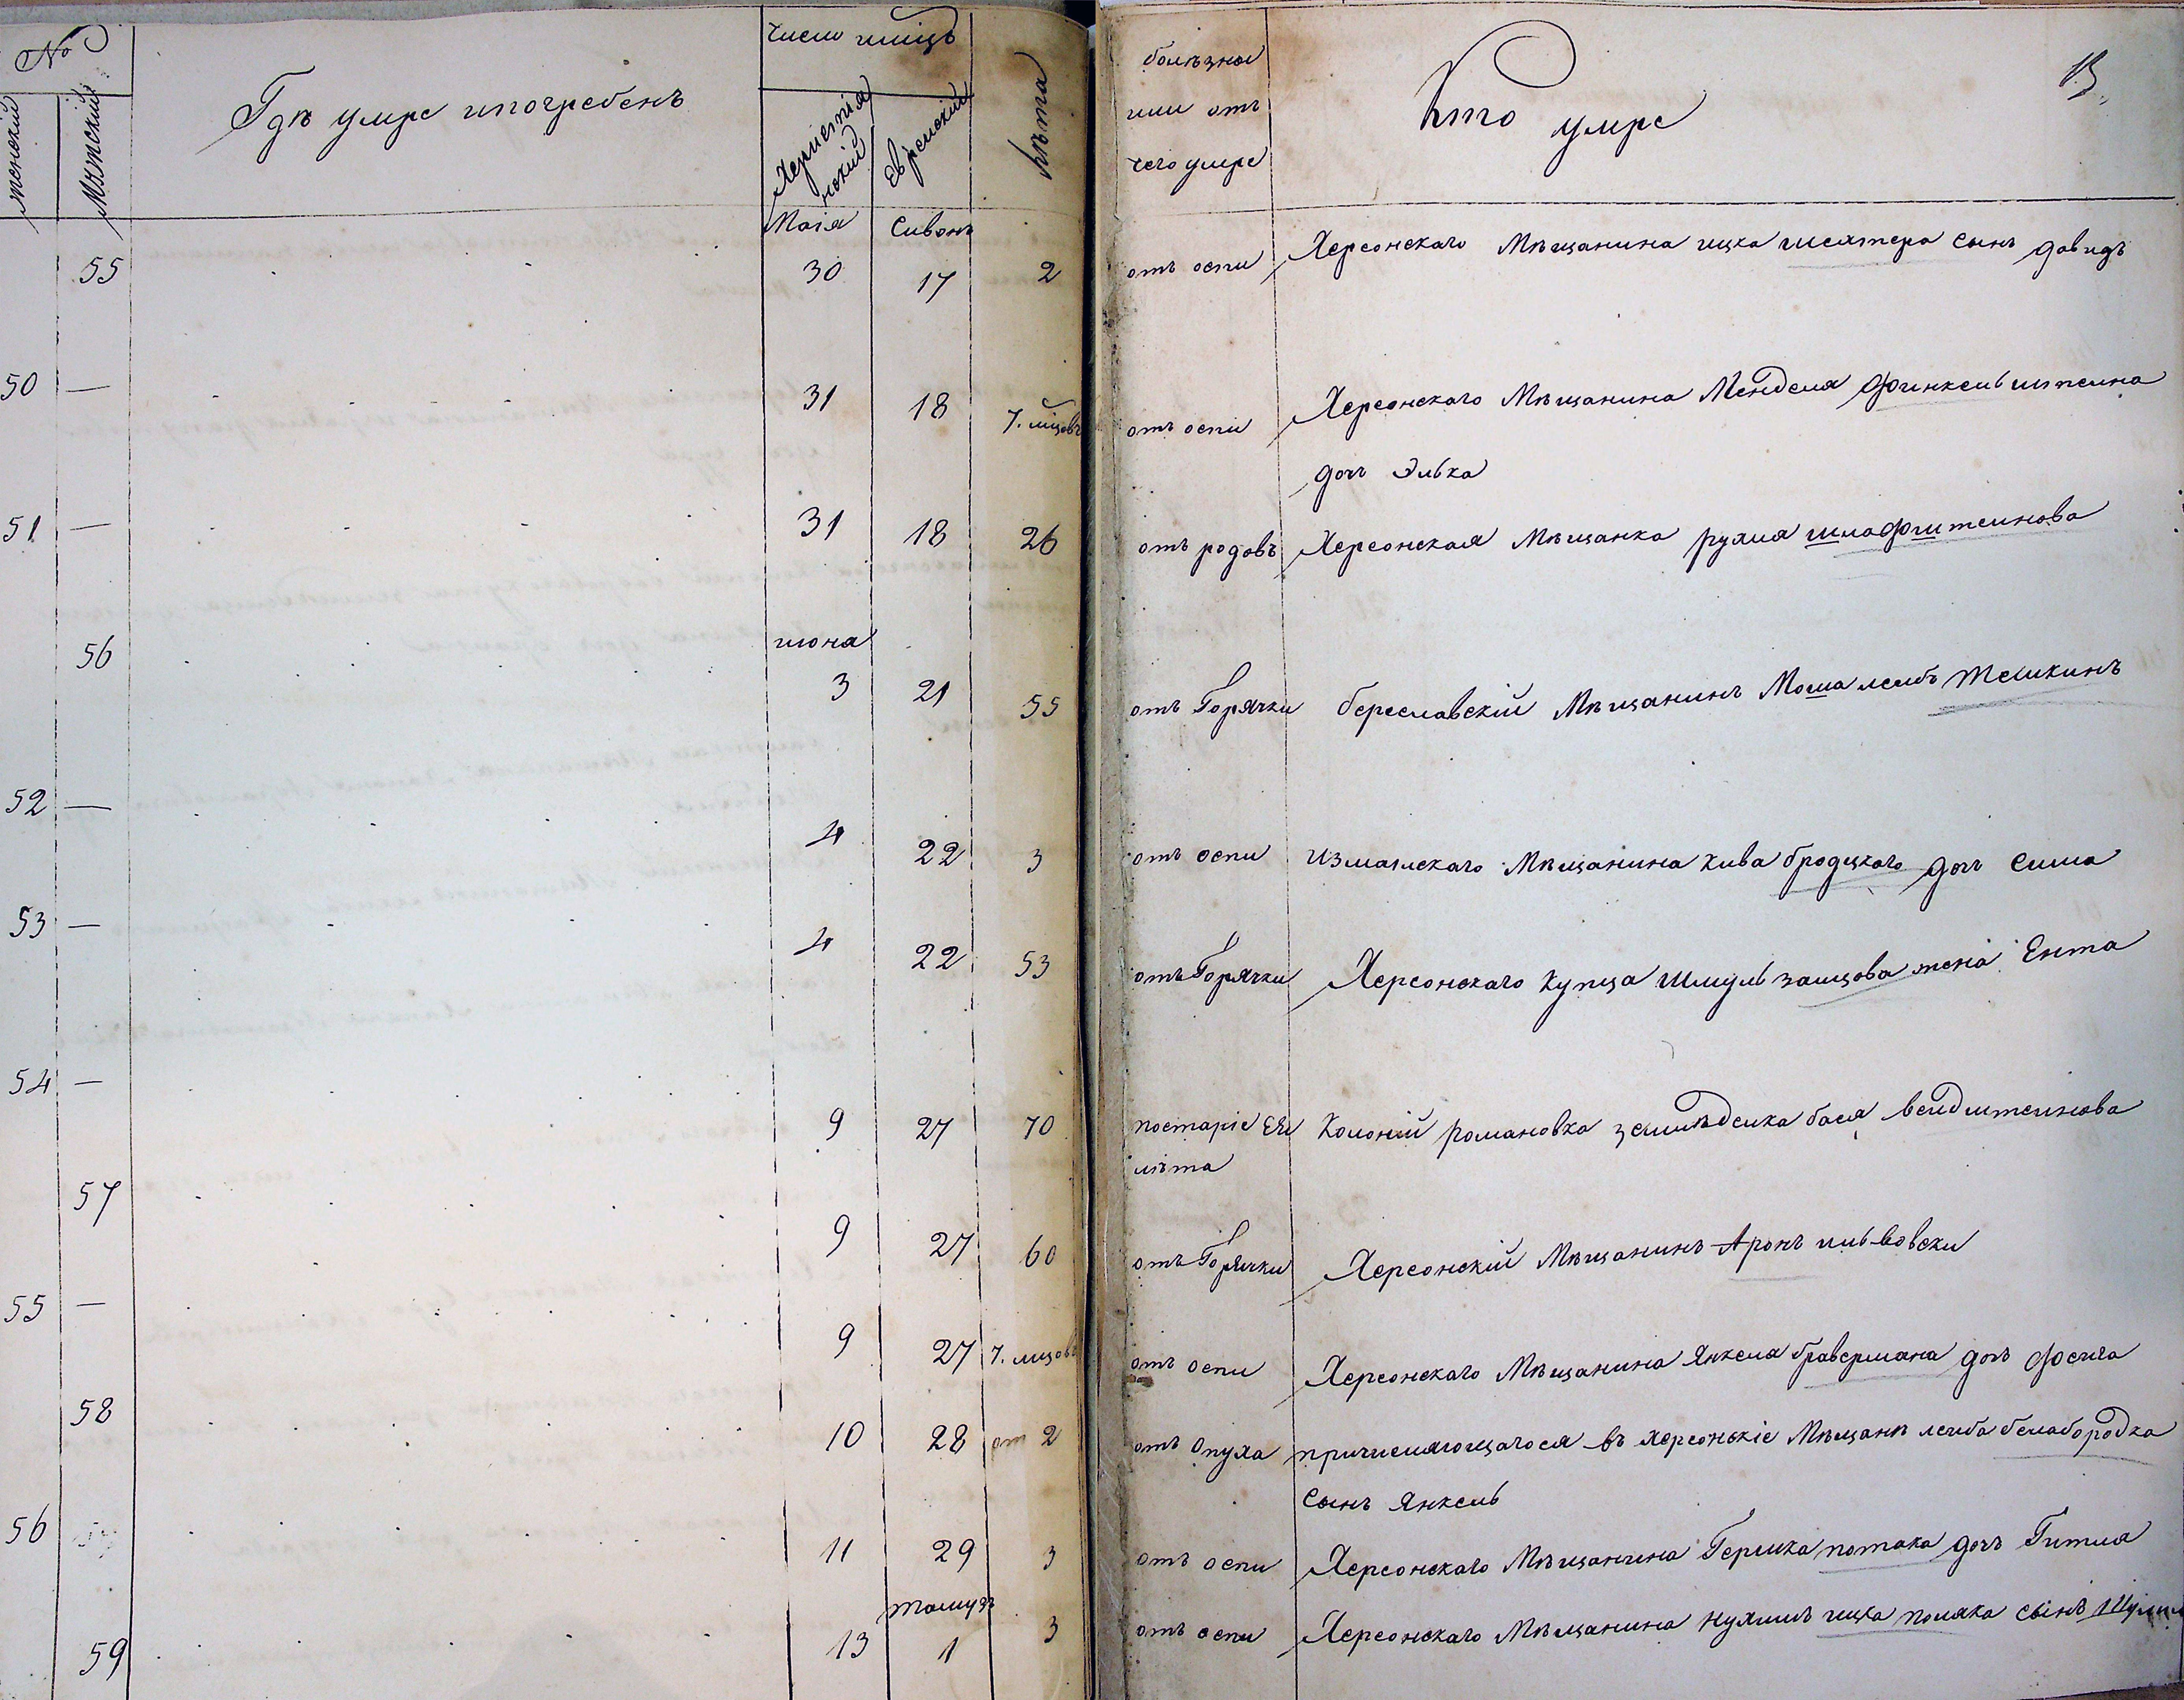 №
женский
Мужский
Гдѣ умре ипогребенъ
Число мѣсцъ
Херистіянскій
Еврейский
Лѣта
болѣзна
или отъ
чего умре
Кто умре
13
Маія Сивонъ
55 30 17 2 отъ оспи Херсонскаго Мѣщанина ицка шехтера сынъ давидъ
50 — 31 18 7. мѣцовъ отъ оспи Херсонскаго Мѣщанина Менделя Финкельштеина
дочъ Элька
51 — 31 18 26 отъ родовъ Херсонская Мѣщанка рухля шлафштеинова
июня
56 3 21 55 отъ Горячки береславскій Мѣщанинъ Мошка лейбъ
52 — 4 22 3 отъ оспи измаилскаго Мѣщанина кива бродцкаго дочъ сима
53 — 4 22 53 отъ Горячки Херсонскаго купца Шмуль зайцова жена Ента
54 — 9 27 70 постаріе Ея Колоній романовка земледелка бася вейдштеинова
лѣта
57 9 27 60 отъ Горячки Херсонскій Мѣщанинъ Аронъ
55 — 9 27 7. мцовъ отъ оспи Херсонскаго Мѣщанина Янкеля бравермана дочъ фейга
58 10 28 от 2 отъ опуха причисляющагося въ херсонскіе Мѣщанѣ лейба белабородка
сынъ Янкель
56 11 29 3 отъ оспи Херсонскаго Мѣщанина Гершка потака дочъ Гитля
тамузъ
59 13 1 3 отъ оспи Херсонскаго Мѣщанина нухимъ ицка поляка сынъ